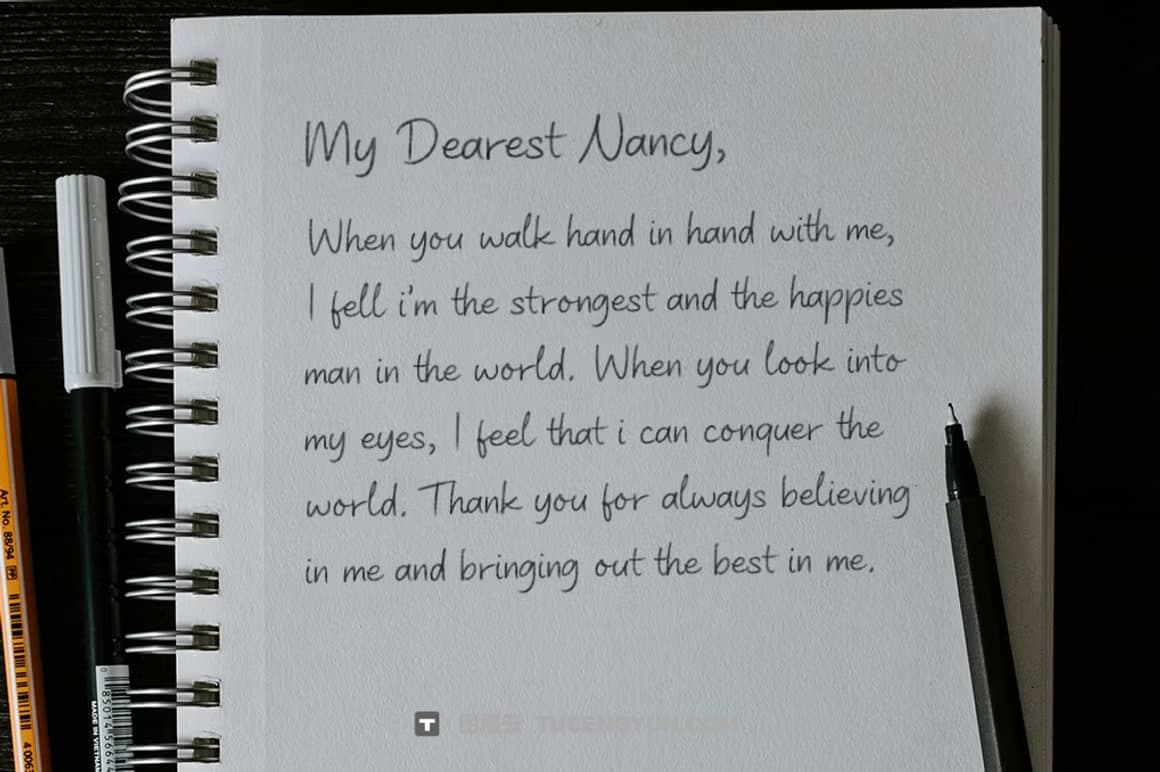 My Dearest Nancy,
When you walk hand in hand with me,
I fell i'm the strongest and the happies
man in the world. When you look into
my eyes, I feel that i can conquer the
world. Thank you for always believing
in me and bringing out the best in me.
Art. No. 88/94
MADE IN VIETNAM
T
TUCENGYUN.COM